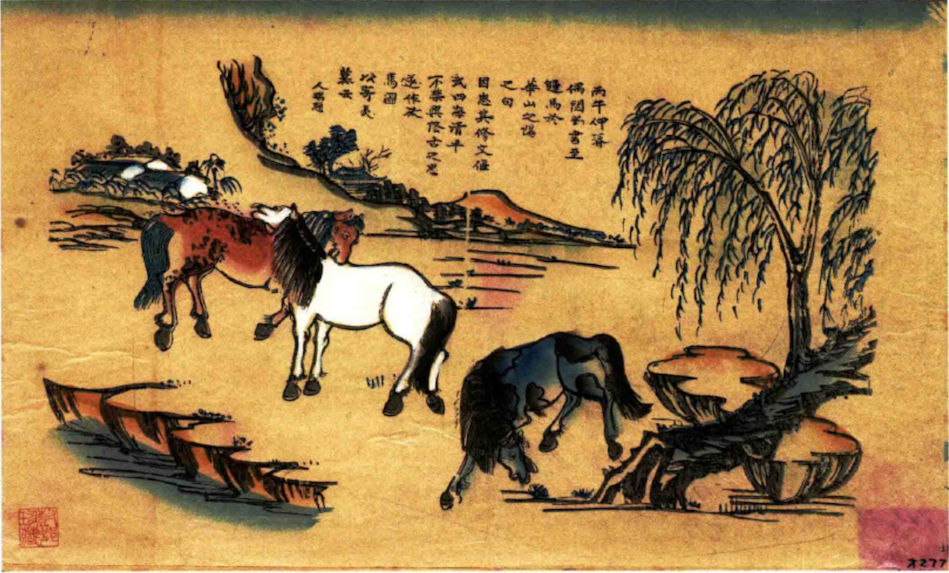 丙午仲
偶閱尚書至
馬於
華山之陽
之句
因思其修文偃
武四海清平
不禁興懷古之思
遂作
馬圖
以寄
慕云
人
277